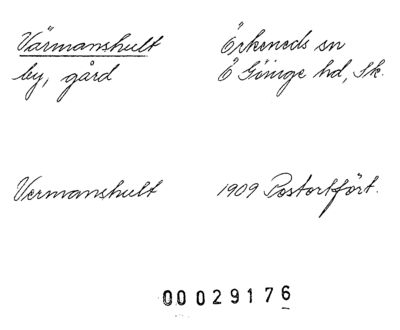 Värmanshult Örkeneds sn
by, gård Ö Göinge hd, Sk.
Vermanshult 1909 Postortfört.
00029176